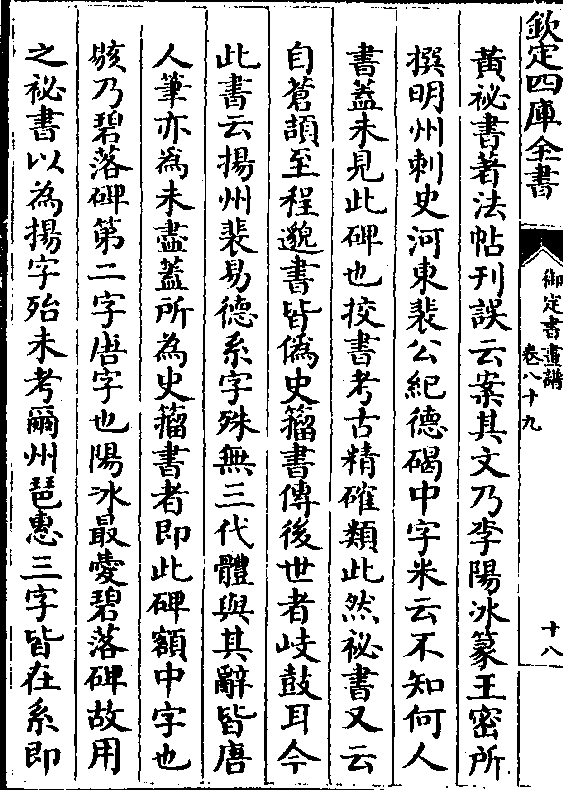 欽定四庫全書
御定書畫譜
卷八十九
十八
黃祕書著法帖刊誤云案其文乃李陽冰篆王密所
撰明州刺史河東裴公紀德碣中字米云不知何人
書葢未見此碑也挍書考古精確類此然祕書又云
自蒼頡至程邈書皆偽史籀書傳後世者岐鼓耳今
此書云揚州裴易德系字殊無三代體與其辭皆唐
人筆亦為未盡葢所為史籀書者即此碑額中字也
䮄乃碧落碑第二字唐字也陽冰最愛碧落碑故用
之祕書以為揚字殆未考爾州琶惪三字皆在系即